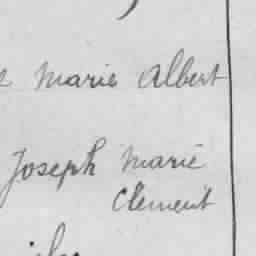 Marie Albert
Joseph Marie
Clement